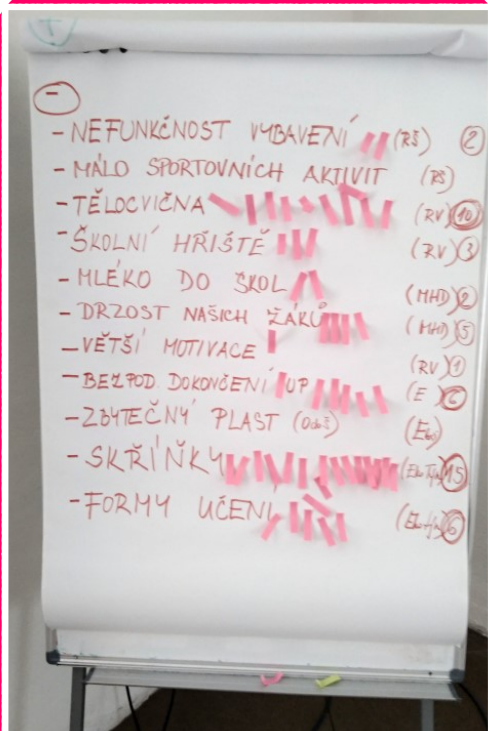 +
-
- NEFUNKČNOST VYBAVENÍ (RŠ) 2
- MÁLO SPORTOVNÍCH AKTIVIT (RŠ)
- TĚLOCVIČNA (RV) 10
- ŠKOLNÍ HŘIŠTĚ (RV) 3
- MLÉKO DO ŠKOL (MHD) 2
- DRZOST NAŠICH ŽÁKŮ (MHD) 5
- VĚTŠÍ MOTIVACE (RV) 1
- BEZPOD. DOKONČENÍ UP (E) 6
- ZBYTEČNÝ PLAST
- SKŘÍŇKY 15
- FORMY UČENÍ 6